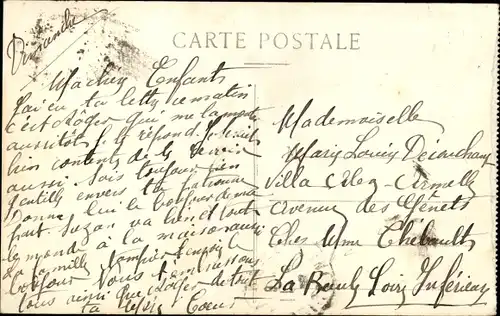 Dimanche
CARTE POSTALE
Ma chere Enfants
J'ai eu ta lettre ce matin
c'est Roger qui me la monte
aussitôt j'y répond je serais
bien contente de te revoir
aussi Sois toujours bien
gentille envers ta
Donne lui le bonjour de ma
part Suzon va bien tout
le monde à la maison aussi
la famille aussi
bonjour Nous t'embrassons
tous ainsi que Roger de tout
Cœur
Mademoiselle
Marie Louise
Villa Armelle
Avenue des Genêts
Chez Mme Thebault
La Baule Loire Inférieure